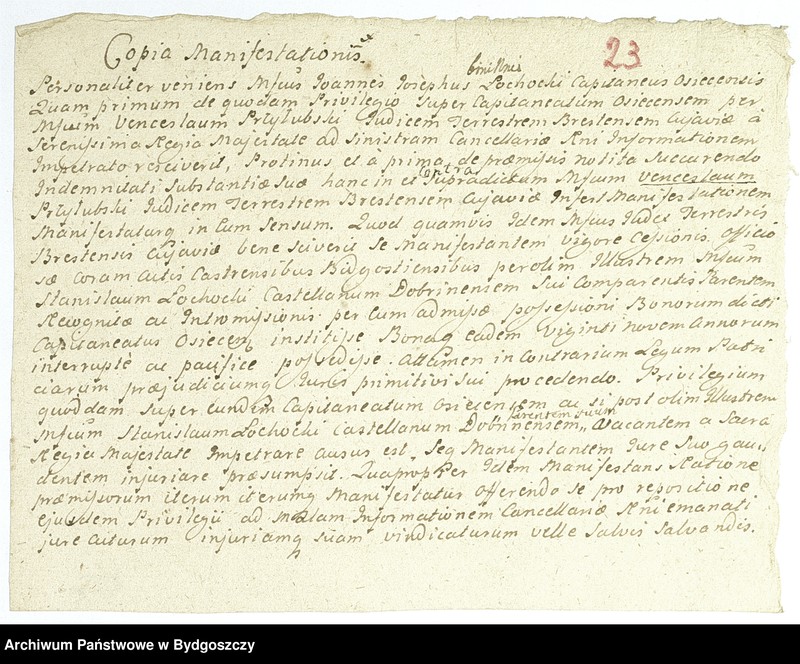 Copia Manifestationis
23
Personaliter veniens Mfcus Joannes Josephus Łochocki Capitaneus Osiecensis
Quam primum de quodam Privilegio Super Capitaneatum Osiecensem per
Mfcum Venceslaum Przyłubski Judicem Terrestrem Brestensem Cujaviæ à
Serenissima Regia Majestate ad sinistram Cancellariæ Rni Informationem
Impetrato resciverit, Protinus et a prima de præmissis notitia Succurendo
Indemnitati Substantiæ Suæ hanc in et contra Supradictum Mfcum Venceslaum
Przyłubski Judicem Terrestrem Brestensem Cujaviæ Infert Manifestationem
Manifestaturq in Eum Sensum. Quod quamvis Idem Mfcus Judex Terrestris
Brestensis Cujaviæ bene sciverit se Manifestantem vigore Cessionis Officio
sæ coram Actis Castrensibus Bidgostiensibus per olim Illustrem Mfcum
Stanislaum Łochocki Castellanum Dobrinensem Sui Comparentis Parentem
Recognitæ ac Intromissionis per Eum admissæ possessioni Bonorum dicti
Capitaneatus Osiecen institisse Bonaq eadem Viginti novem Annorum
interrupte ac pacifice possedisse. Attamen in Contrarium Legum Patri
ciarum præjudiciumq Juris primitivi sui procedendo. Privilegium
quoddam Super eundem Capitaneatum Osiecensem ac si post olim Illustrem
Mfcum Stanislaum Łochocki Castellanum Dobrinensem Parentem suum Vacantem a Sacra
Regia Majestate Impetrare ausus est, Seq Manifestantem Jure Suo gau,
dentem injuriare præsumpsit. Quapropter Idem Manifestans Ratione
præmissorum iterum iterumq Manifestatur Offerendo se pro repositione
ejusdem Privilegii ad malam Informationem Cancellariæ Rni emanati
jure acturum injuriamq suam vindicaturum velle Salvis Salvandis.
Archiwum Państwowe w Bydgoszczy